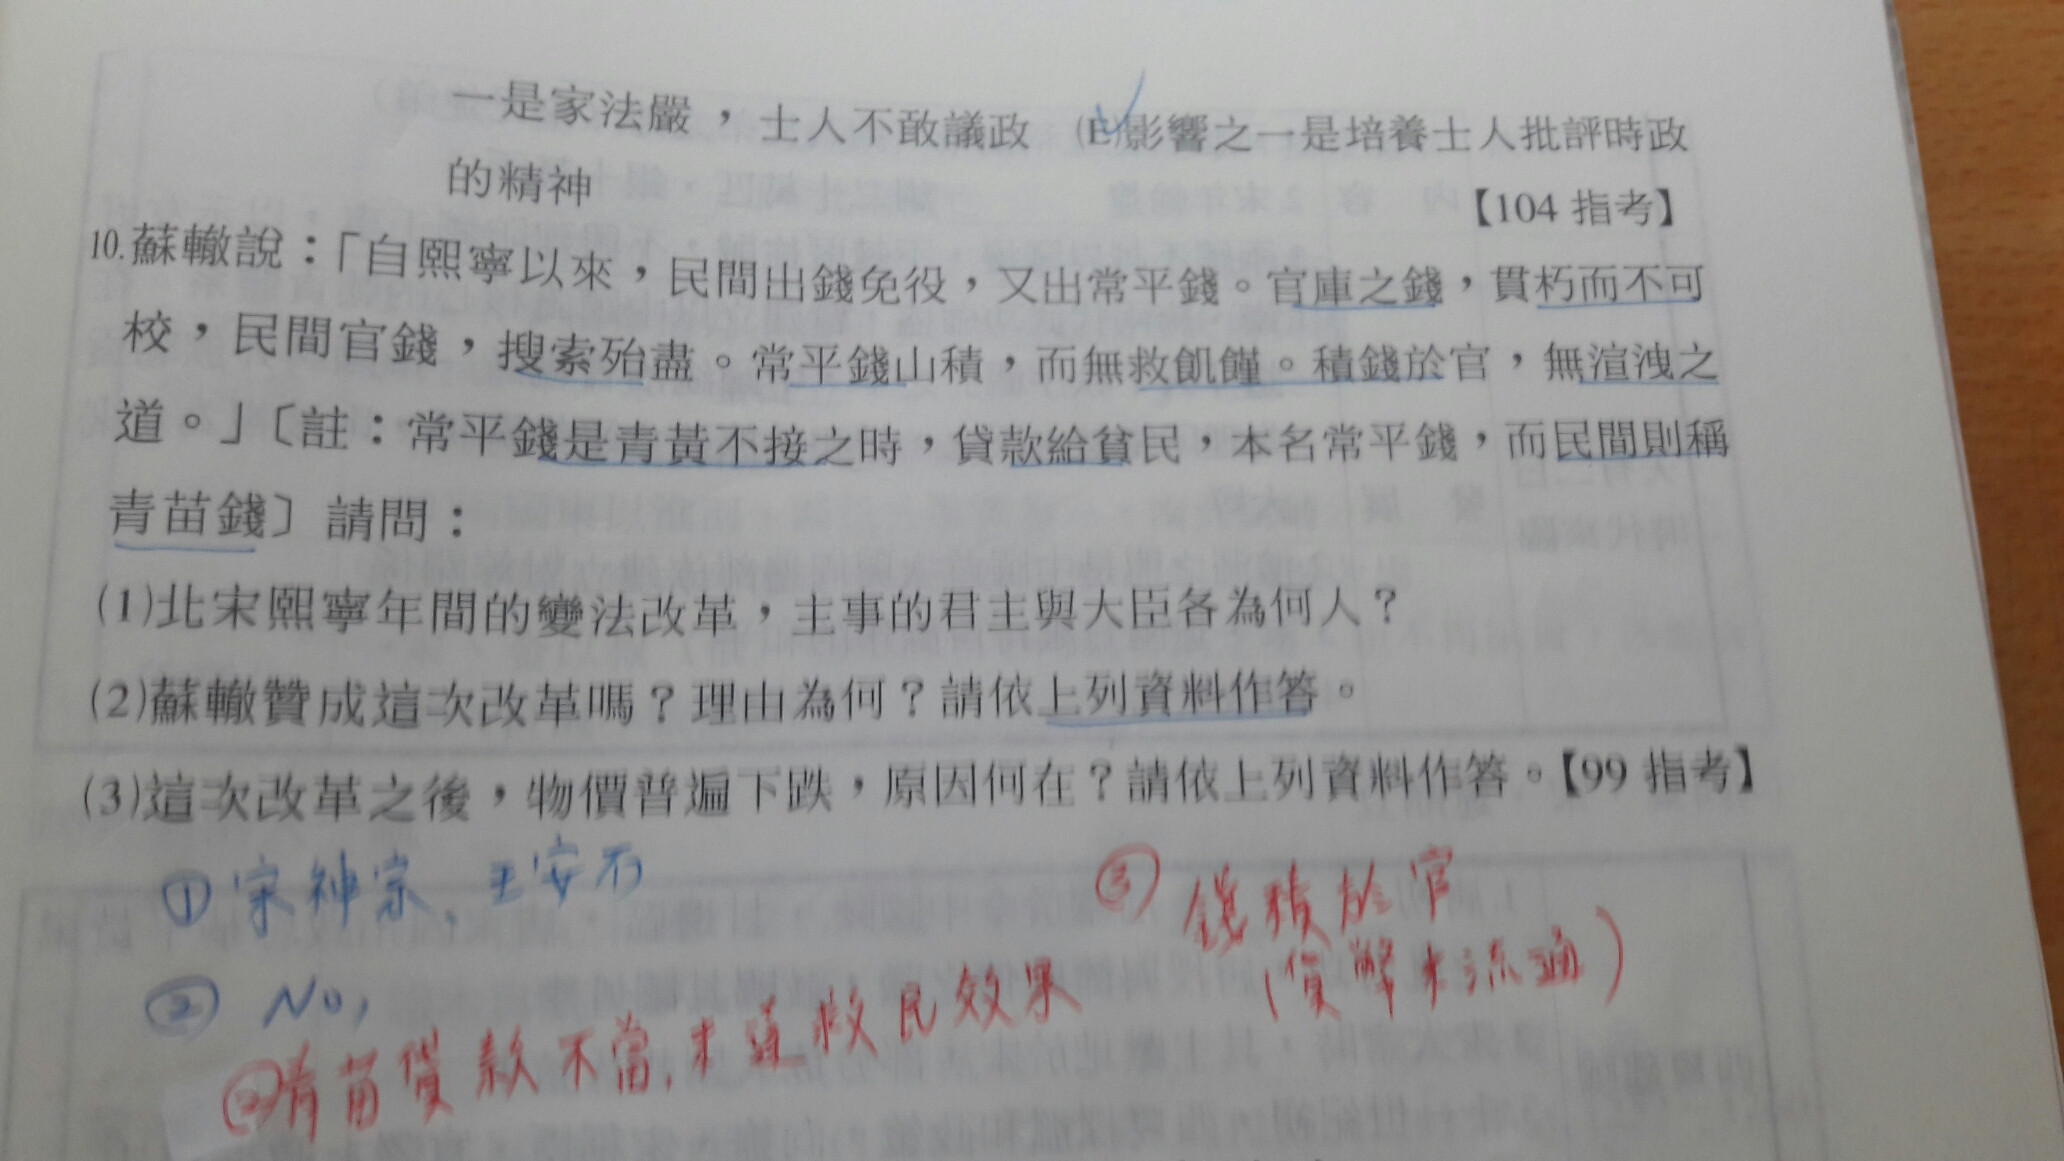 一是家法嚴，士人不敢議政　(E)影響之一是培養士人批評時政
的精神
【104 指考】
10.蘇轍說：「自熙寧以來，民間出錢免役，又出常平錢。官庫之錢，貫朽而不可
校，民間官錢，搜索殆盡。常平錢山積，而無救飢饉。積錢於官，無渲洩之
道。」〔註：常平錢是青黃不接之時，貸款給貧民，本名常平錢，而民間則稱
青苗錢〕請問：
(1)北宋熙寧年間的變法改革，主事的君主與大臣各為何人？
(2)蘇轍贊成這次改革嗎？理由為何？請依上列資料作答。
(3)這次改革之後，物價普遍下跌，原因何在？請依上列資料作答。【99 指考】
① 宋神宗、王安石
② No,
②青苗貸款不當,未達救民效果
③ 錢積於官
(貨幣未流通)